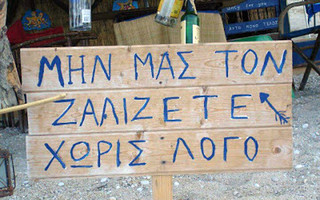 ΜΗΝ ΜΑΣ ΤΟΝ
ΖΑΛΙΖΕΤΕ
ΧΩΡΙΣ ΛΟΓΟ